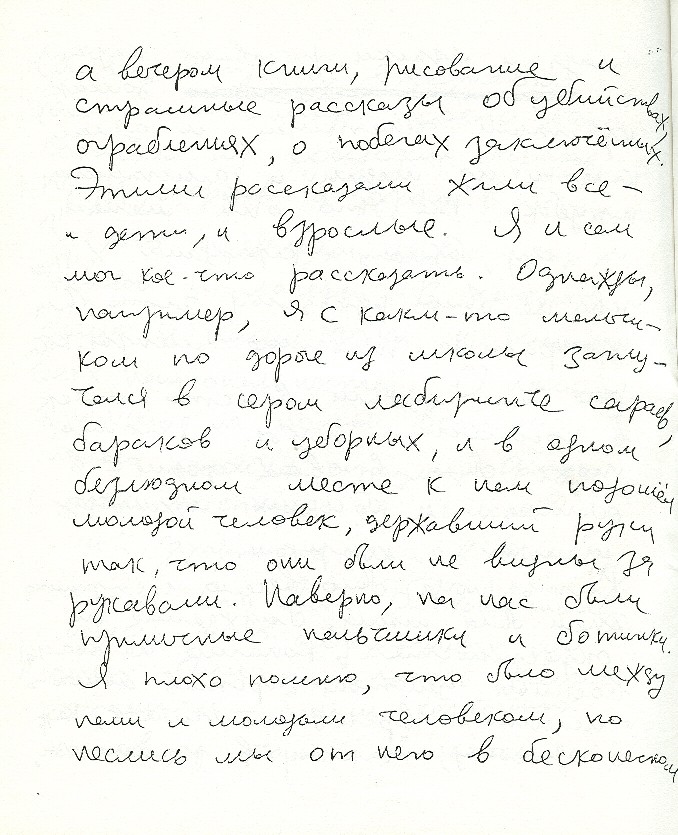 а вечером книги, рисование и
страшные рассказы об убийствах,
ограблениях, о побегах заключённых.
Этими рассказами жили все –
и дети, и взрослые. Я и сам
мог кое-что рассказать. Однажды,
например, я с каким-то мальчи-
ком по дороге из школы заплу-
тался в сером лабиринте сараев,
бараков и уборных, и в одном
безлюдном месте к нам подошёл
молодой человек, державший руки
так, что они были не видны за
рукавами. Наверно, на нас были
приличные пальтишки и ботинки.
Я плохо помню, что было между
нами и молодым человеком, но
неслись мы от него в бесконечном